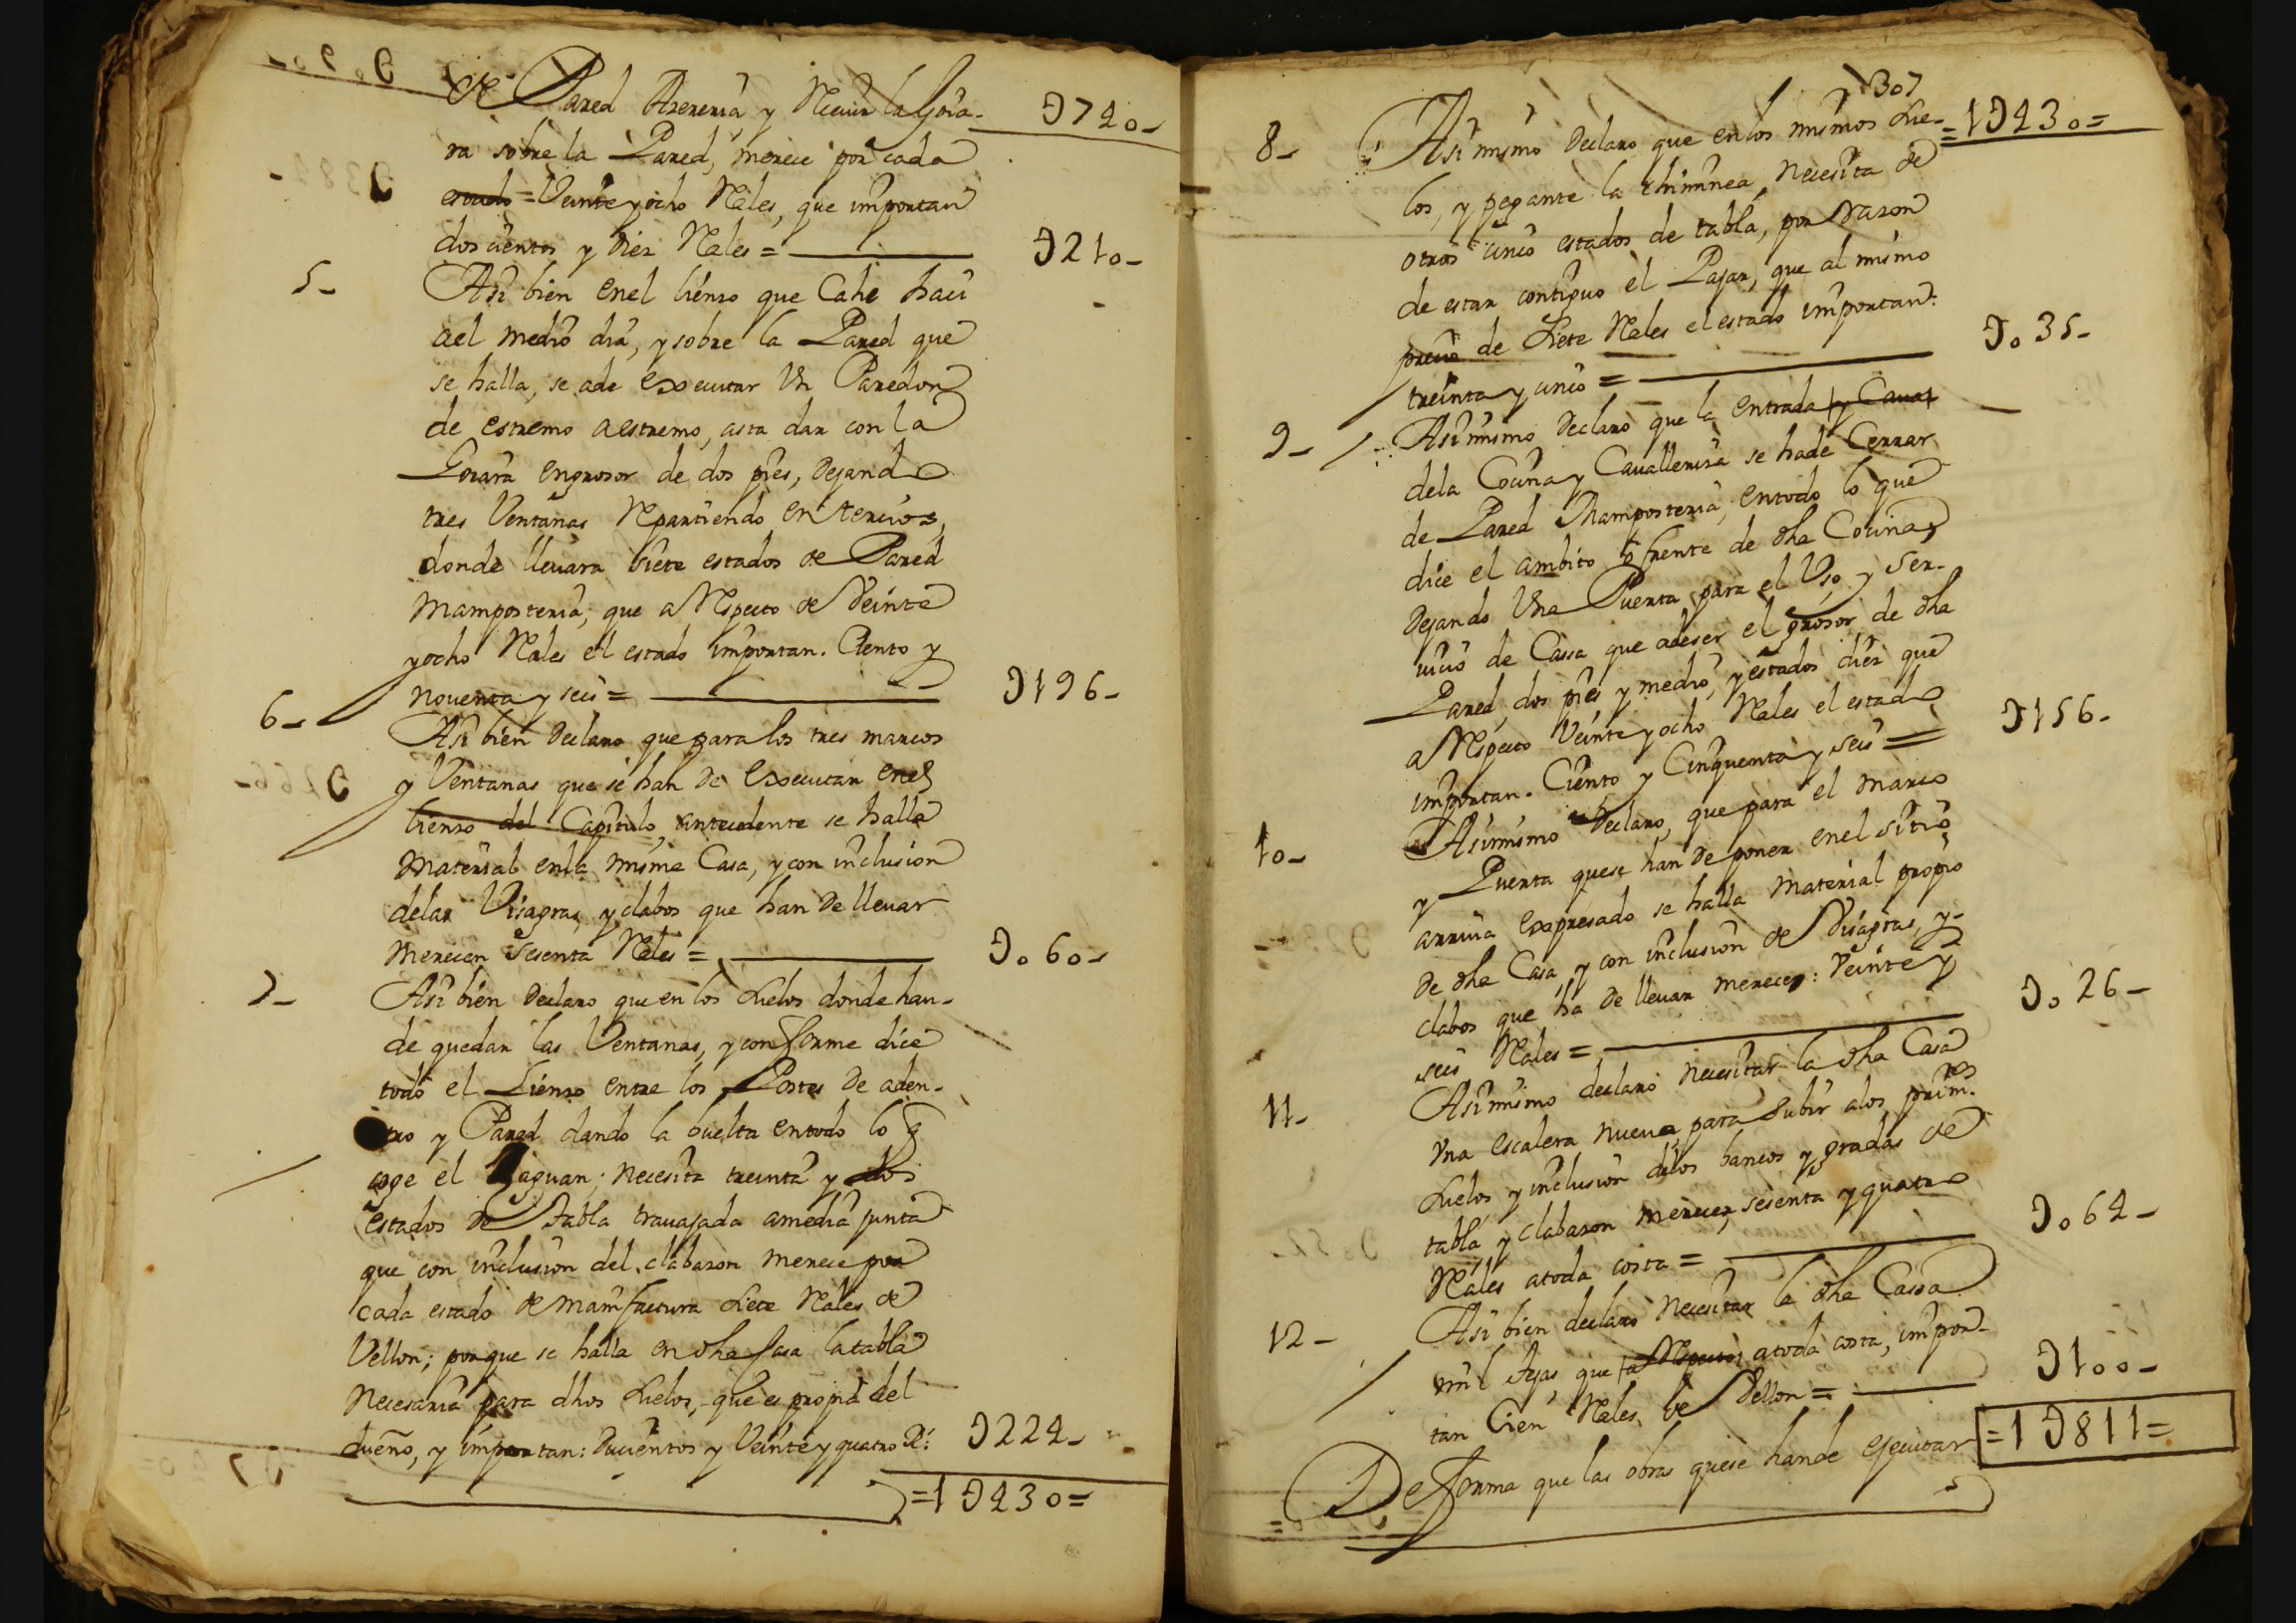 de Pared Azereria y Reciuir la Gota-
ra sobre la Pared, merece por cada
estado = Veinte y ocho Rales, que importan
doscientos y diez Rales =
Asi bien en el lienso que Cahe haci
a el medio dia, y sobre la Pared que
se halla, se a de executar Un Paredon
de estremo a estremo, asta dar con la
en grosor de dos pies, Dejando
tres Ventanas Repartiendo en tercios,
donde lleuara siete estados de Pared
Mamposteria; que a Respecto de Veinte
y ocho Rales el estado importan. Ciento y
noventa y seis =
Asi bien Declaro que para los tres marcos
y Ventanas que se han de Executar en el
lienso del Capitulo antecedente se halla
Material en la misma Casa, y con inclusion
de las Visagras, y clabos que han de lleuar
merecen sesenta Rales =
Asi bien Declaro que en los suelos donde han-
de quedar las Ventanas, y conforme dice
todo el Lienso entre los Postes de aden-
tro y Pared dando la buelta en todo lo q̃
coge el Zaguan; necesita treinta y dos
estados de Tabla trauajada a media junta
que con inclusion del clabazon merece por
cada estado de manifactura siete Rales de
Vellon; porque se halla en dha Casa la tabla
necesaria para dhos suelos, que es propia del
dueño, y importan: Ducientos y Veinte y quatro Rs:
5-
6-
7-
Ɔ740-
Ɔ210-
Ɔ196-
Ɔ060-
Ɔ224-
=1Ɔ430=
307
=1Ɔ430=
8-
Asimismo Declaro que en los mismos sue-
los, y pegante la chiminea, necesita de
otros cinco estados de tabla, por razon
de estar contiguo el Pajar, que al mismo
precio de siete Rales el estado importan:
treinta y cinco =
Ɔ035-
9-
Asimismo Declaro que la entrada y Caua
de la Cocina y Caualleriza se ha de Cerrar
de Pared Mamposteria, en todo lo que
dice el ambito o frente de dha Cocina,
Dejando Una Puerta para el Uso, y ser-
uicio de Cassa que a de ser el grosor de dha
Pared, dos pies y medio, y estados diez que
a Respecto Veinte y ocho Rales el estado
importan. Ciento y Cinquenta y seis =
Ɔ156-
10-
Asimismo Declaro, que para el Marco
y Puerta que se han de poner en el sitio
arriua expresado se halla Material propio
de dha Casa, y con inclusion de Visagras, y-
clabos que ha de lleuar merecen: Veinte y
seis Rales =
Ɔ026-
11-
Asimismo declaro necesitar la dha Casa
Una escalera nueua para subir a los prim.ros
suelos, y inclusion de los bancos y gradas de
tabla y clabazon merecen, sesenta y quatro
Rales a toda costa =
Ɔ064-
12-
Asi bien declaro necesitar la dha Cassa
mil tejas, que a Respecto a toda costa, impor-
tan Cien Rales de Vellon =
Ɔ100-
=1Ɔ811=
De forma que las obras que se han de ejecutar